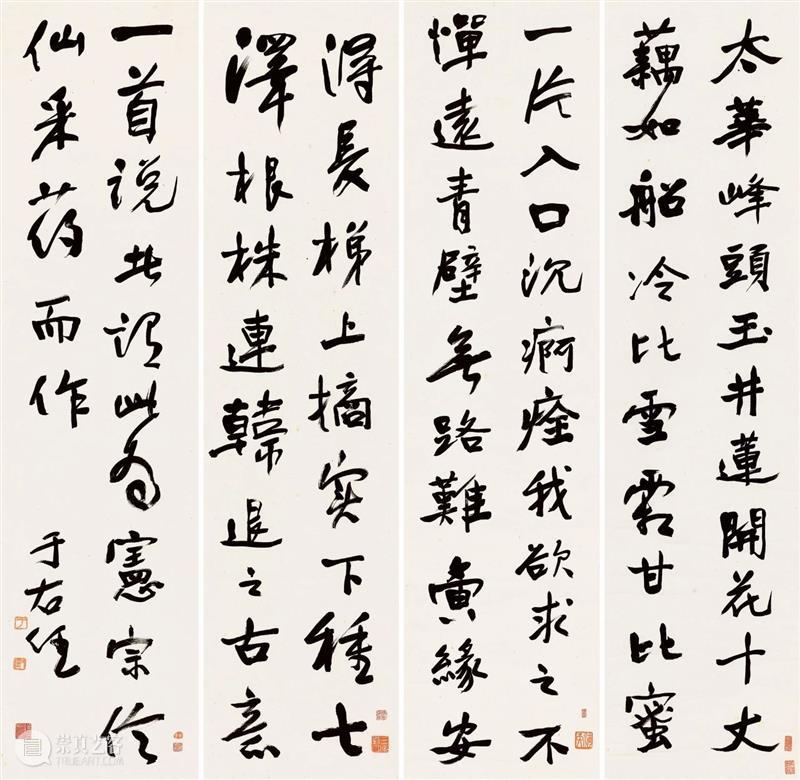 太華峰頭玉井蓮開花十丈
藕如船冷比雪霜甘比蜜
一片入口沉痾痊我欲求之不
憚遠青壁無路難夤緣安
得長梯上摘實下種七
澤根株連韓退之古意
一首説者謂此為憲宗
仙采药而作 于右任
崇真艺客
TRUEART.COM